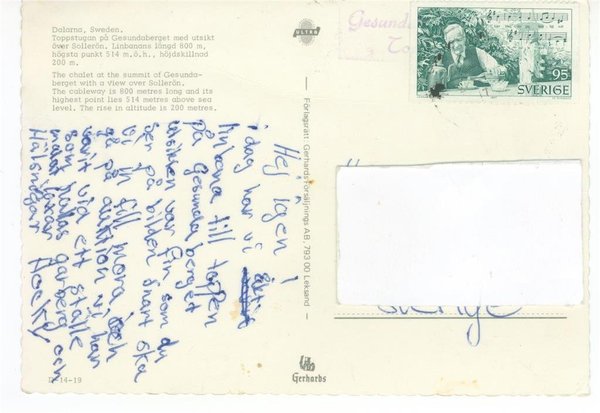 Dalarna, Sweden.
Toppstugan på Gesundaberget med utsikt
över Sollerön. Linbanans längd 800 m,
högsta punkt 514 m.ö.h., höjdskillnad
200 m.
The chalet at the summit of Gesunda-
berget with a view over Sollerön.
The cableway is 800 metres long and its
highest point lies 514 metres above sea
level. The rise in altitude is 200 metres.
ULTRA
Gesunda
95
SVERIGE
Hej igen!
i dag har vi åkt
linbana till toppen
på Gesundaberget
utsikten var fin som du
ser på bilden snart ska
vi till mora och
gå på auktion vi har
varit vid ett ställe
som kallas garberg och
matat laxar
Hälsningar
Sverige
Förlagsrätt: Gerhards Försäljnings AB, 793 00 Leksand
Gerhards
D-14-19